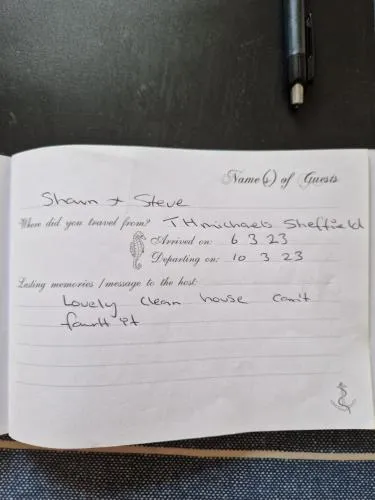 Name(s) of Guests
Shawn + Steve
Where did you travel from? THmichaels Sheffield
Arrived on: 6 3 23
Departing on: 10 3 23
Lasting memories / message to the host:
Lovely clean house can't
fault it